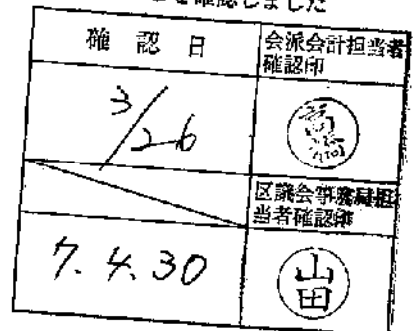 を確認しました
確認日
会派会計担当者
確認印
3/26
高橋
区議会事務局担
当者確認印
7.4.30
山田